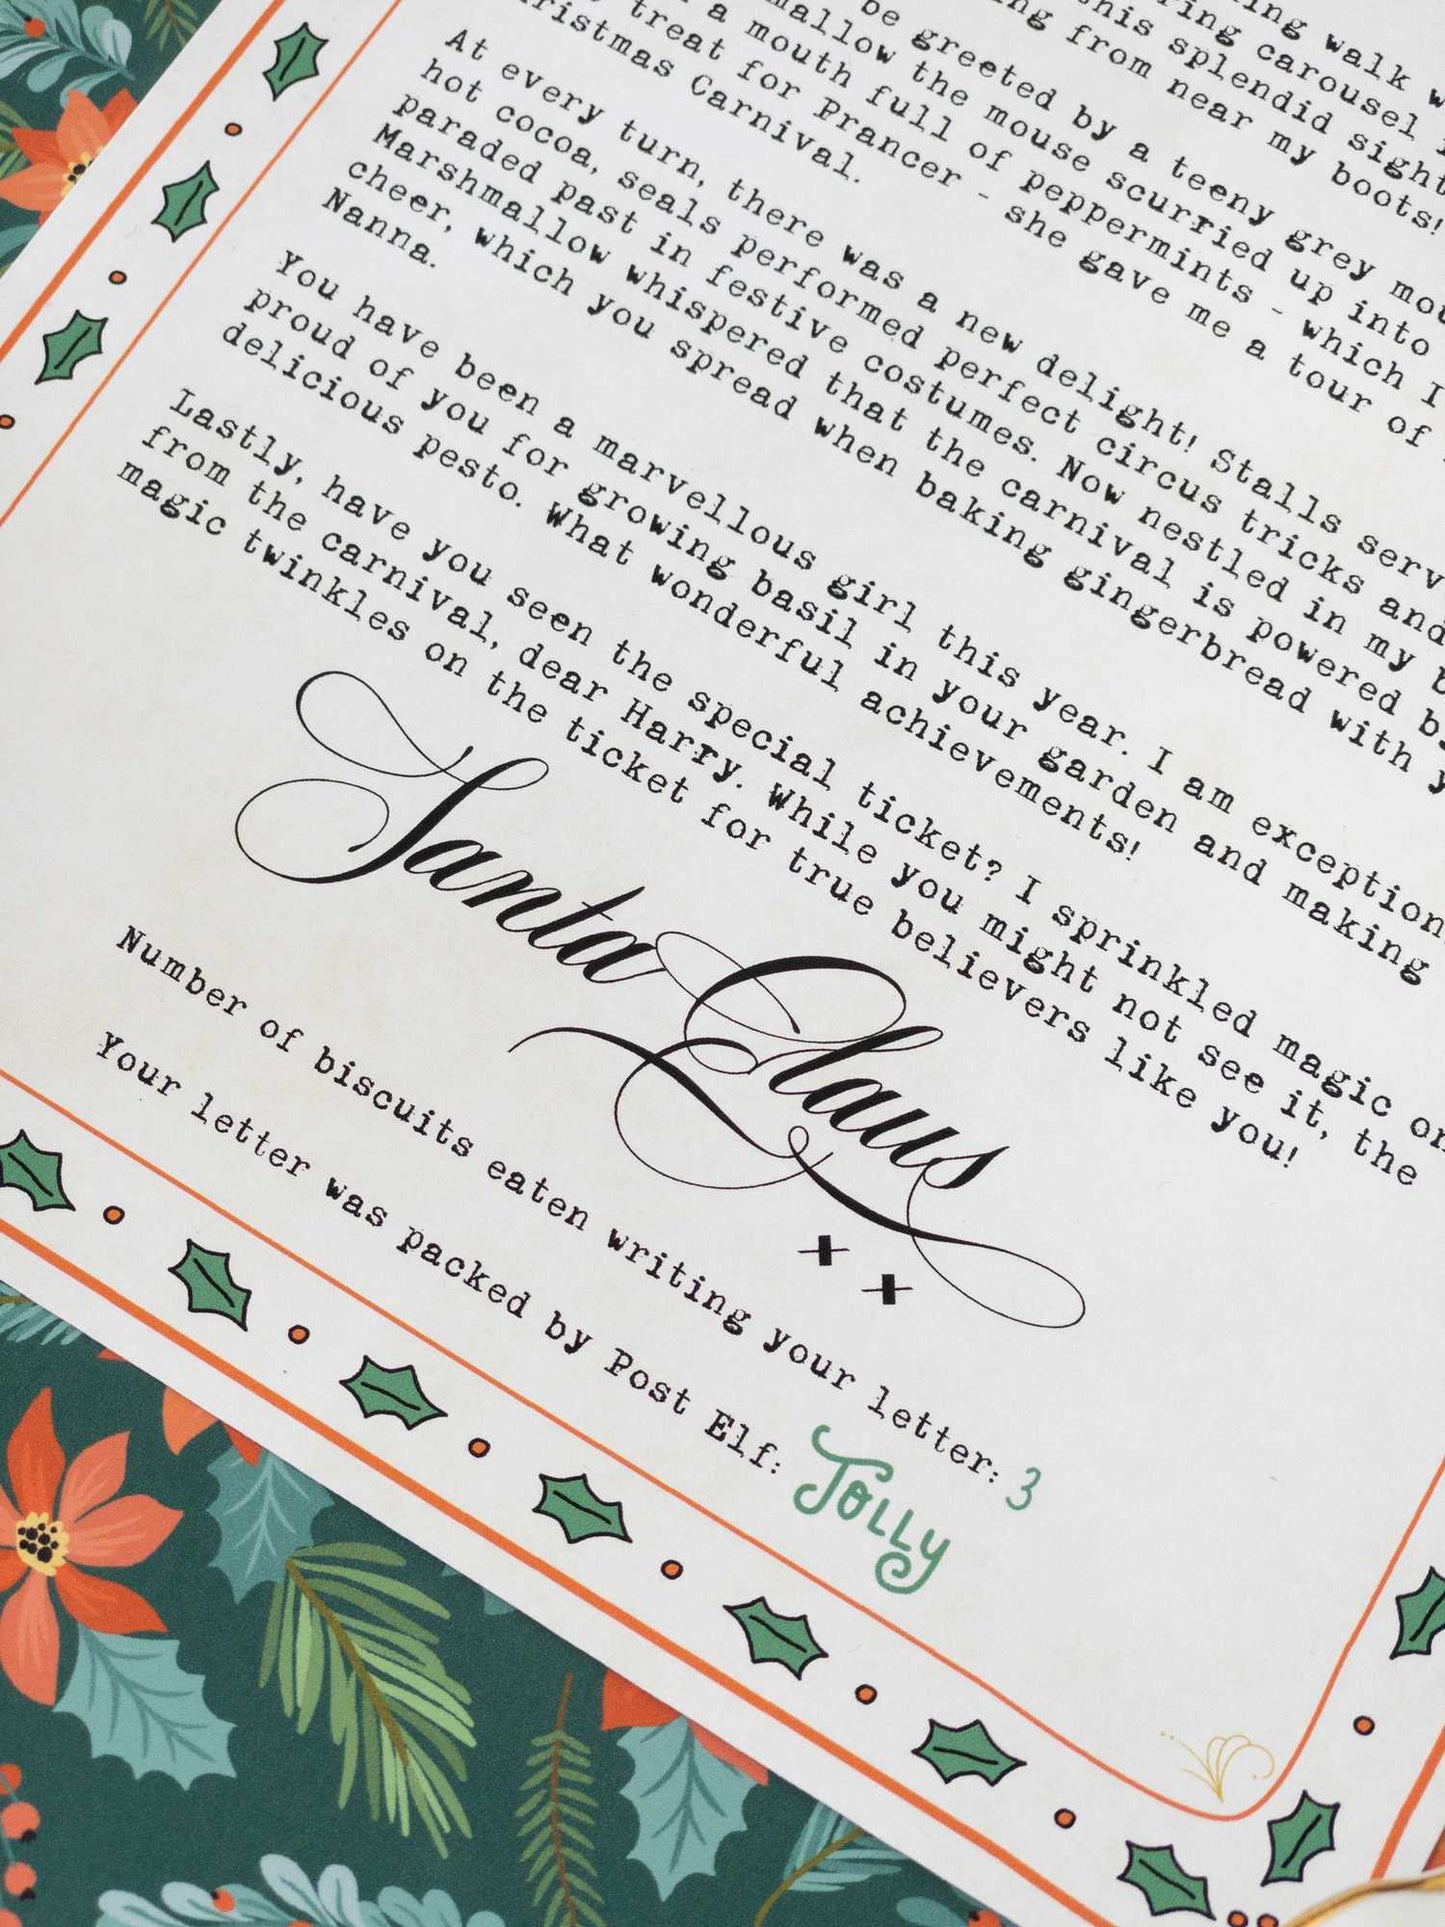 walk
carousel
this splendid sight
from near my boots!
be greeted by a teeny grey
the mouse scurried up into
a mouth full of peppermints - which I
treat for Prancer - she gave me a tour of
Carnival.
At every turn, there was a new delight! Stalls serv
hot cocoa, seals performed perfect circus tricks and
paraded past in festive costumes. Now nestled in my
Marshmallow whispered that the carnival is powered
cheer, which you spread when baking gingerbread with
Nanna.
You have been a marvellous girl this year. I am exception
proud of you for growing basil in your garden and making
delicious pesto. What wonderful achievements!
Lastly, have you seen the special ticket? I sprinkled magic on
from the carnival, dear Harry. While you might not see it, the
magic twinkles on the ticket for true believers like you!
Santa Claus
x x
Number of biscuits eaten writing your letter: 3
Your letter was packed by Post Elf: Jolly